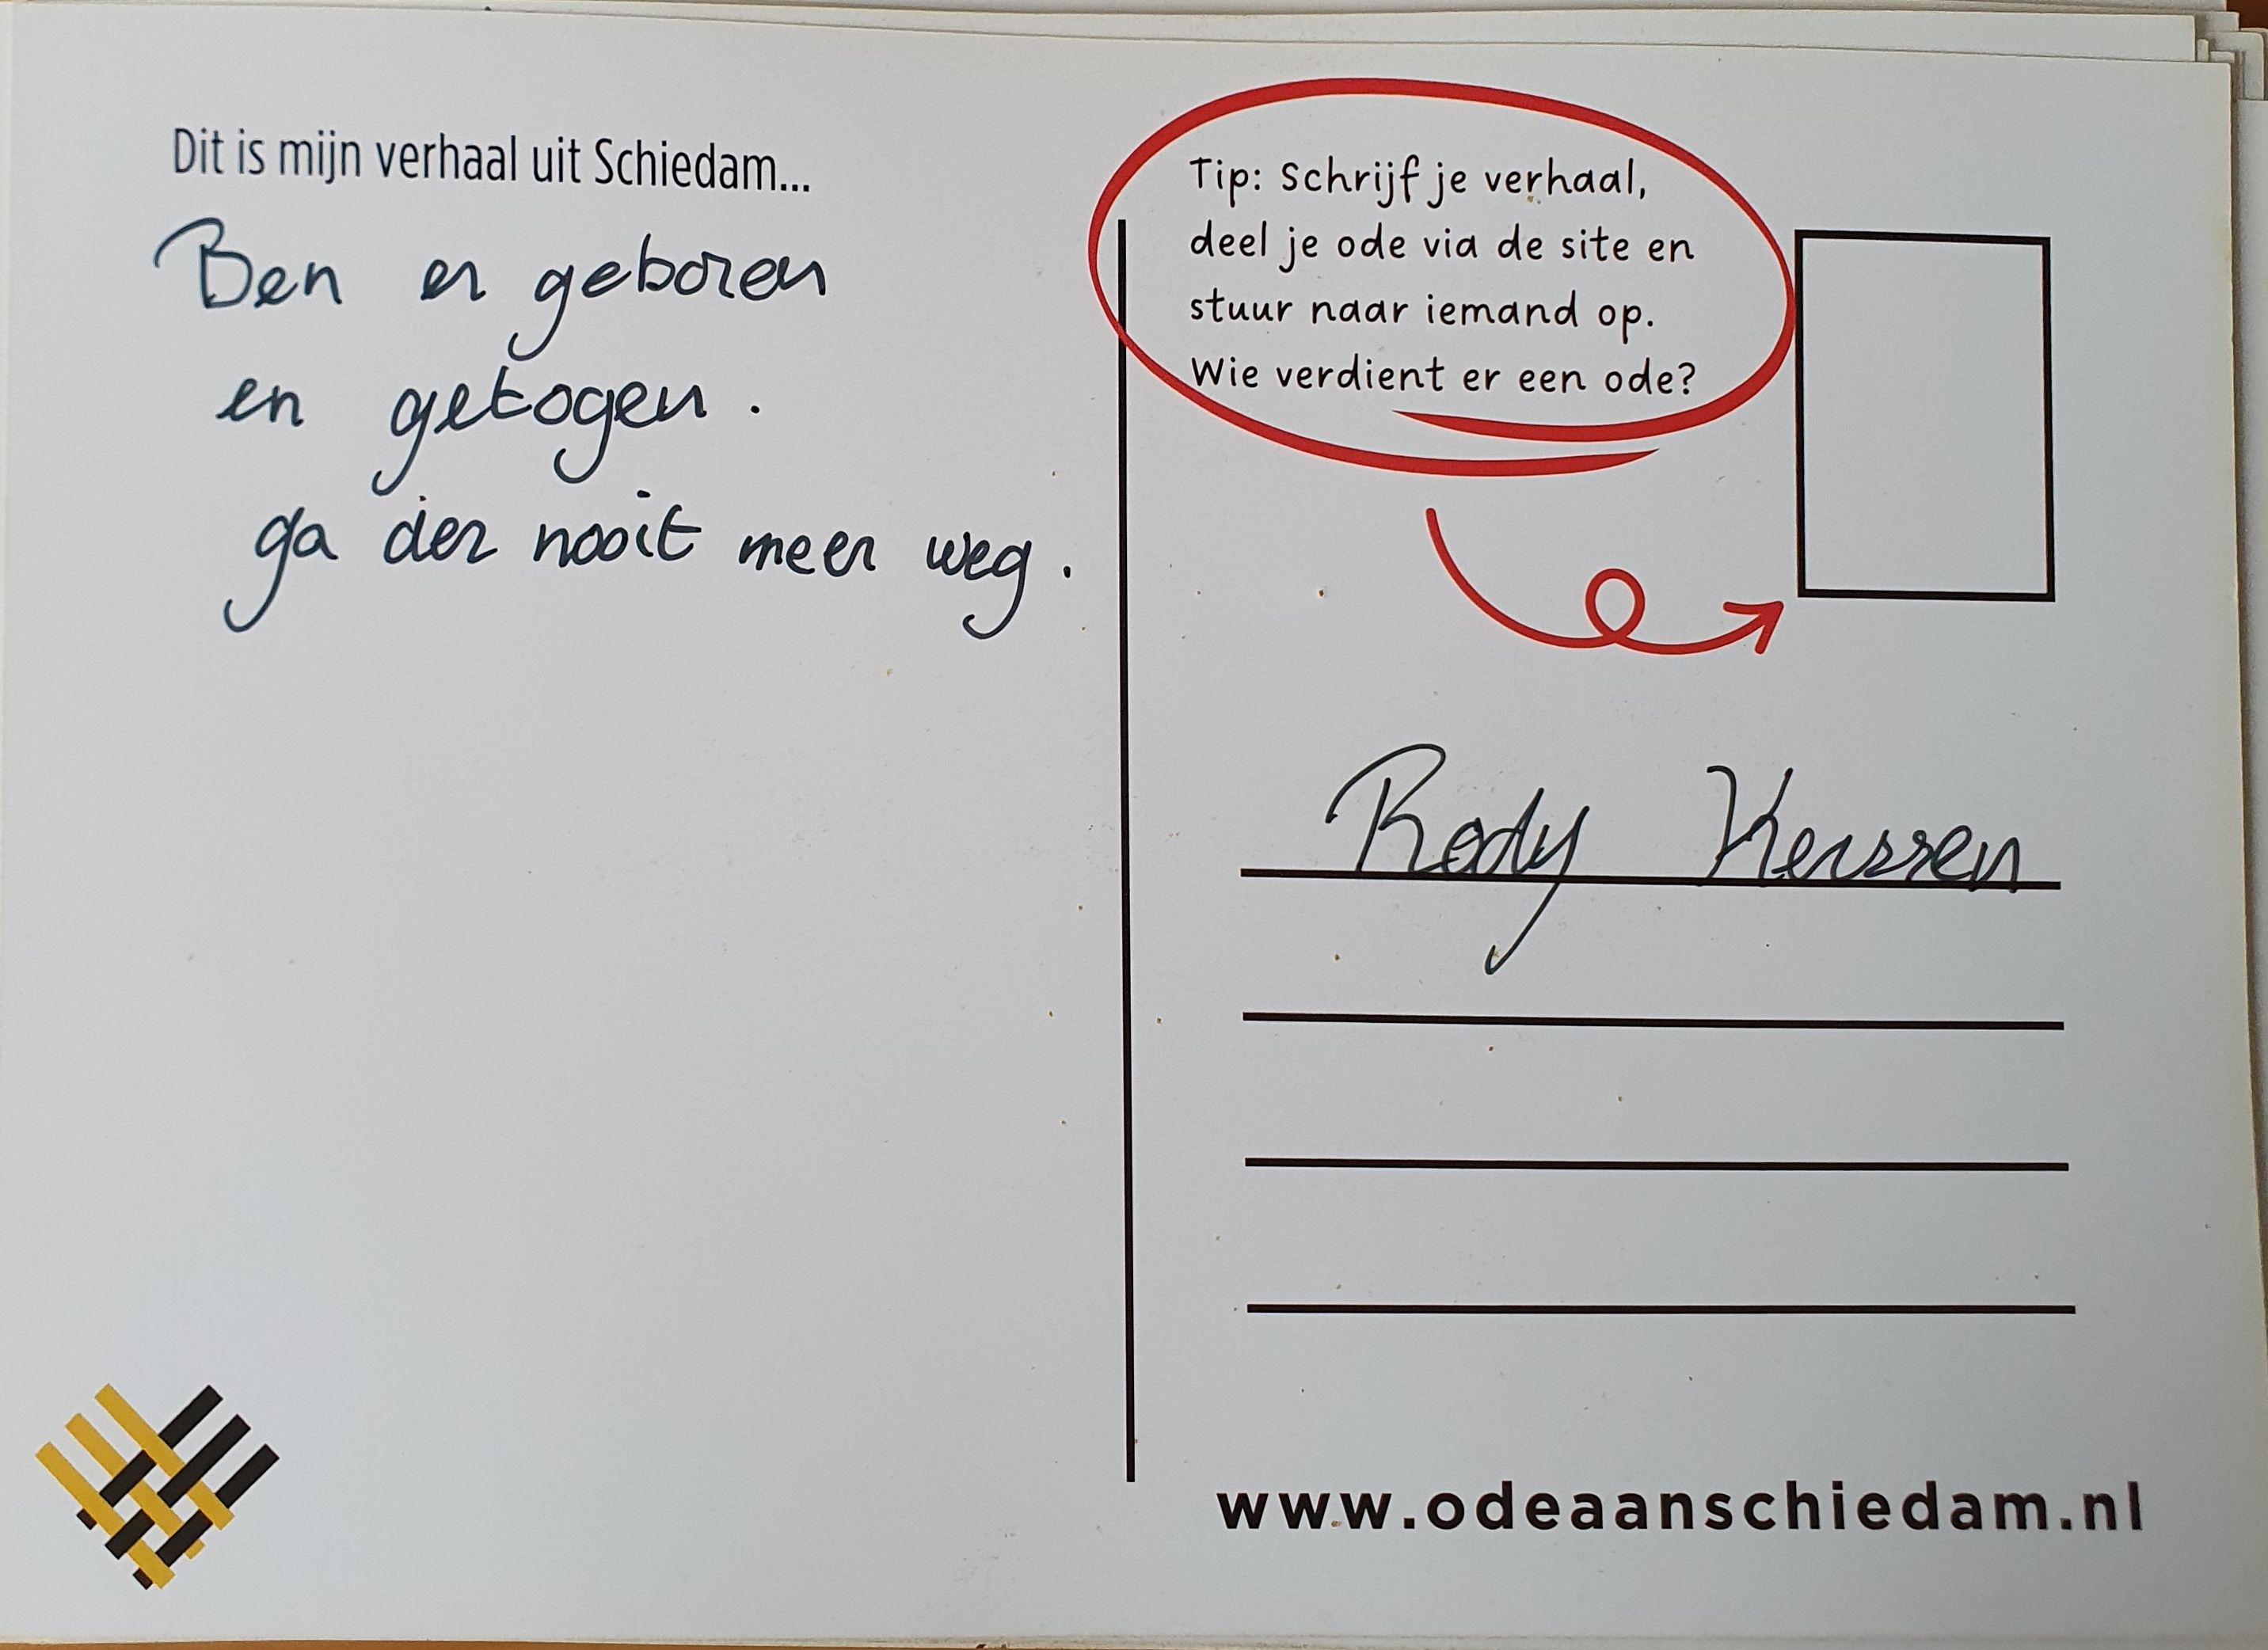 Dit is mijn verhaal uit Schiedam...
Ben er geboren
en getogen.
ga der nooit meer weg.
Tip: Schrijf je verhaal,
deel je ode via de site en
stuur naar iemand op.
Wie verdient er een ode?
Rody Kerssen
www.odeaanschiedam.nl